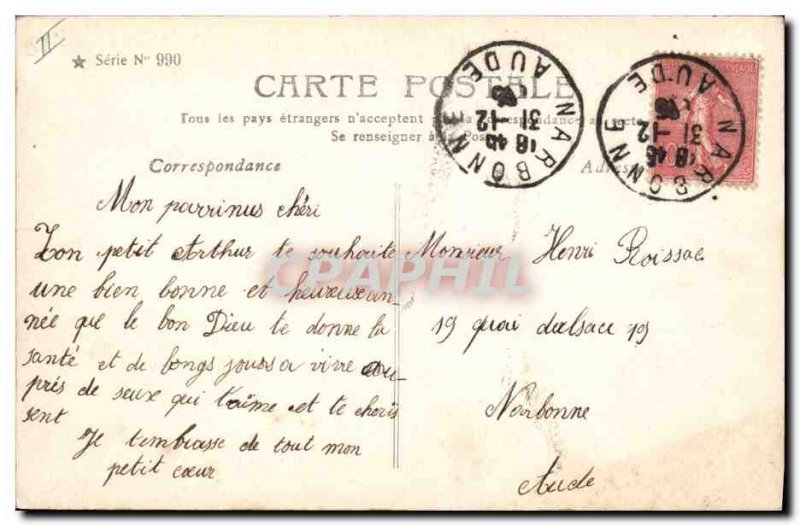 II
★ Série No 990
CARTE POSTALE
Tous les pays étrangers n'acceptent pas la correspondance au recto
Se renseigner à la Poste
Correspondance
Adresse
NARBONNE
AUDE
18 45
31-12
NARBONNE
AUDE
18 45
31-12
Mon parrinus chéri
Ton petit Arthur te souhaite
une bien bonne et heureuse an-
née que le bon Dieu te donne la
santé et de longs jours a vivre au-
près de seux qui t'aime et te cheris
sent
Je t'embrasse de tout mon
petit cœur
Monsieur Henri Roissac
19 quai dalsace 19
Narbonne
Aude
CPAPHIL